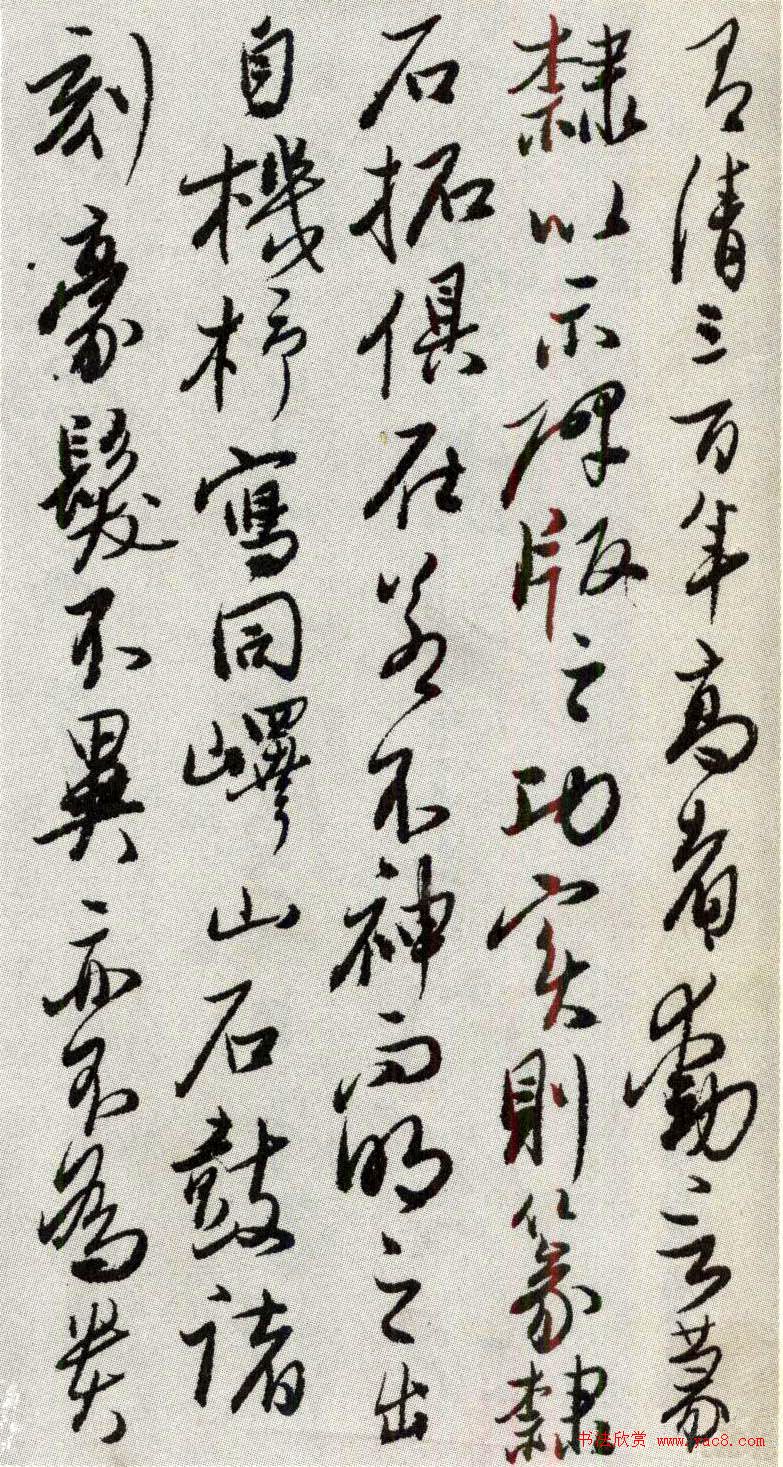 有清三百年高者動言篆
隸以示碑版之功實則篆隸
石拓俱在若不神而明之出
自機杼寫同嶧山石鼓諸
刻豪髮不異亦不為貴
书法欣赏 www.yac8.com